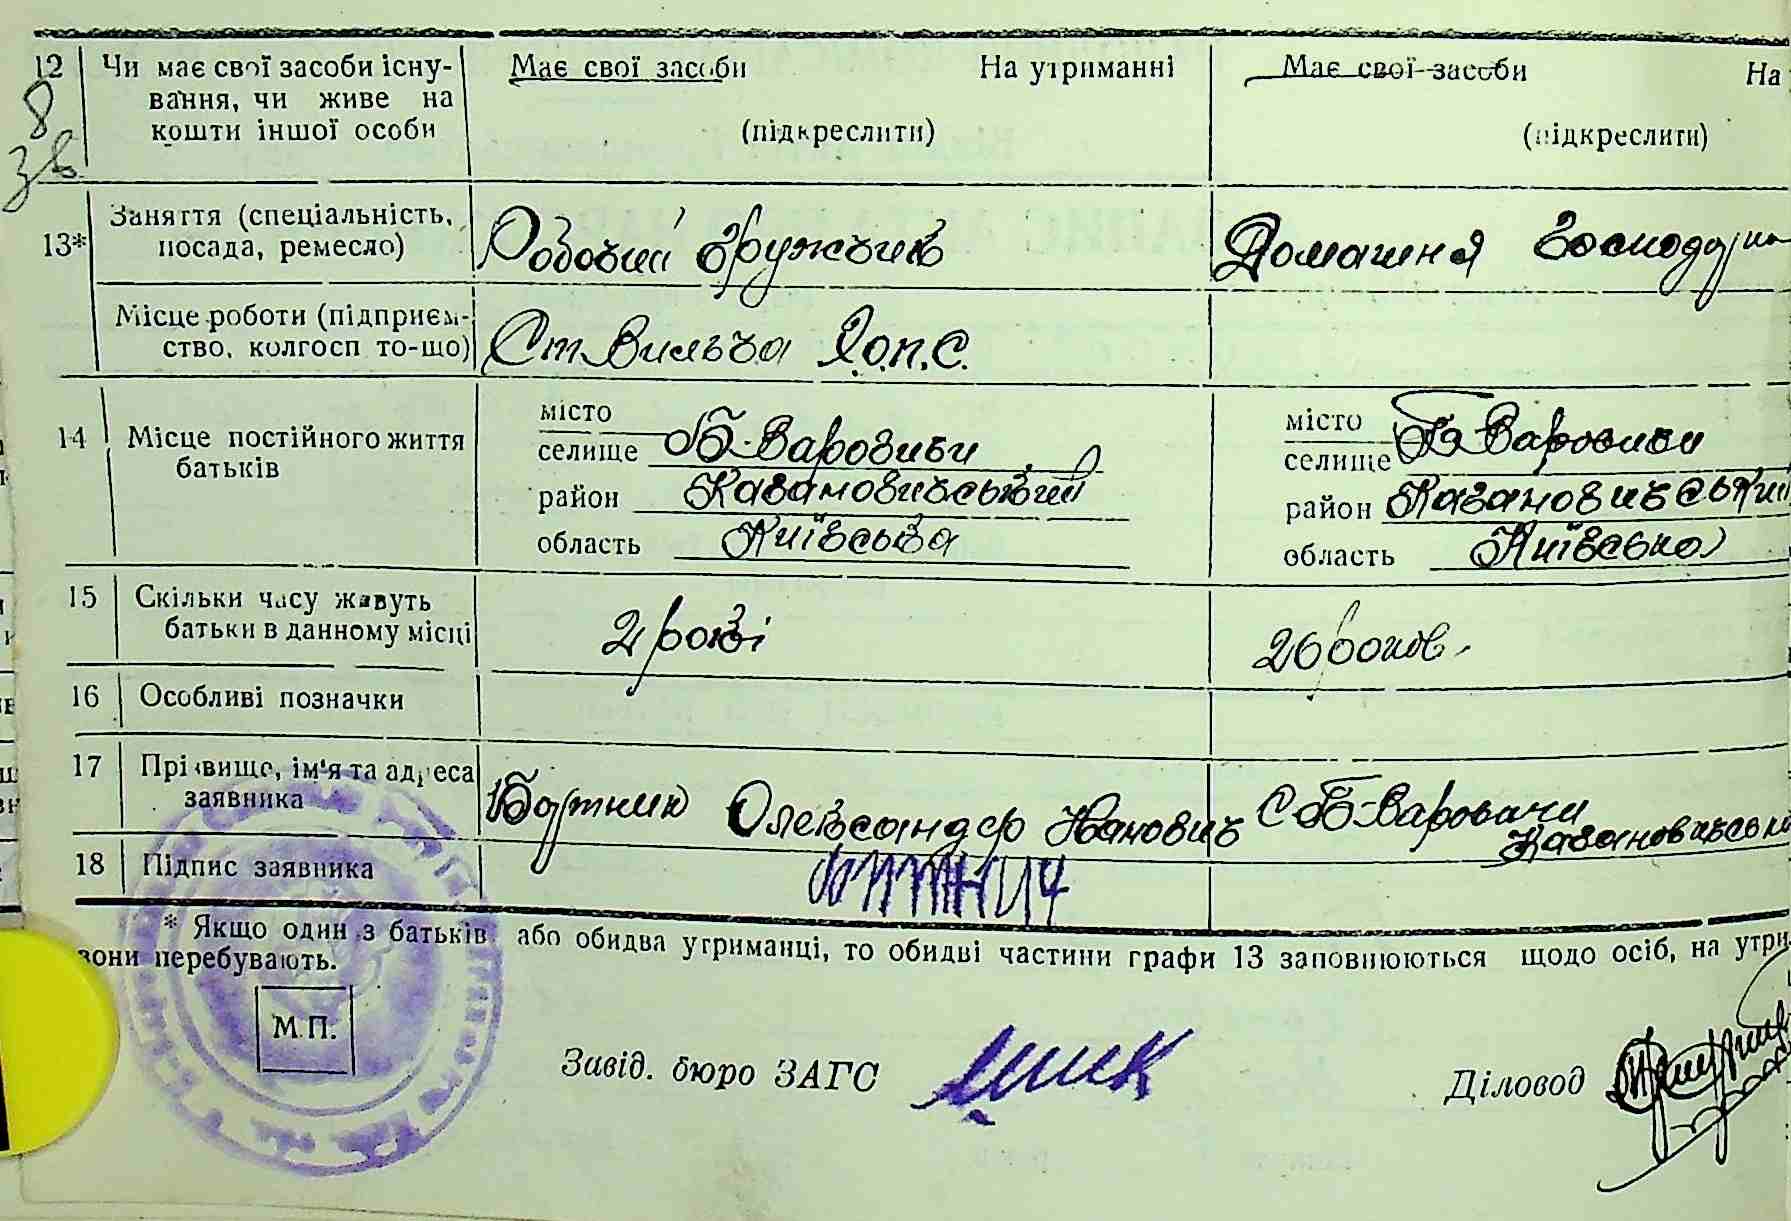 12 Чи має свої засоби існу- Має свої засоби На утриманні Має свої засоби На
8 вання, чи живе на
кошти іншої особи (підкреслити) (підкреслити)
зв
Заняття (спеціальність,
13* посада, ремесло) Робочий Домашня
Місце роботи (підприєм-
ство, колгосп то-що) Ст Вильча
місто місто
14 Місце постійного життя селище Б-Варовичи селище Б-Варовичи
батьків район Кагановичський район Кагановичський
область Київська область Київська
15 Скільки часу живуть
батьки в данному місці 2 рокі 26 роков.
16 Особливі позначки
17 Прізвище, ім'я та адреса
заявника Бортник Олександр Іванович С Б-Варовичи
Кагановичськи
18 Підпис заявника
* Якщо один з батьків або обидва утриманці, то обидві частини графи 13 заповнюються щодо осіб, на утри-
вони перебувають.
М.П.
Завід. бюро ЗАГС Діловод